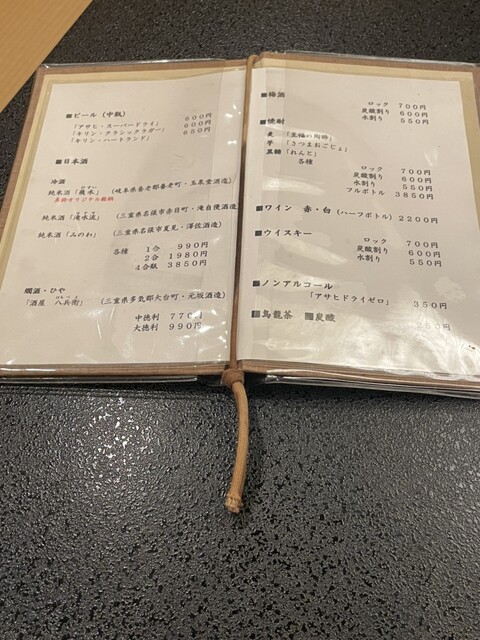 ■ビール (中瓶)
「アサヒ・スーパードライ」 600円
「キリン・クラシックラガー」 600円
「キリン・ハートランド」 650円
■日本酒
冷酒
純米酒「醴水」 (岐阜県養老郡養老町・玉泉堂酒造)
オリジナル銘柄
純米酒「滝水流」 (三重県名張市赤目町・滝自慢酒造)
純米酒「みのわ」 (三重県名張市夏見・澤佐酒造)
各種 1合 990円
2合 1980円
4合瓶 3850円
燗酒・ひや
「酒屋 八兵衛」 (三重県多気郡大台町・元坂酒造)
中徳利 770円
大徳利 990円
■梅酒
ロック 700円
炭酸割り 600円
水割り 550円
■焼酎
麦 「至福の陶酔」
芋 「さつまおごじょ」
黒糖 「れんと」
各種
ロック 700円
炭酸割り 600円
水割り 550円
フルボトル 3850円
■ワイン 赤・白 (ハーフボトル) 2200円
■ウイスキー
ロック 700円
炭酸割り 600円
水割り 550円
■ノンアルコール
「アサヒドライゼロ」 350円
■烏龍茶 ■炭酸 250円